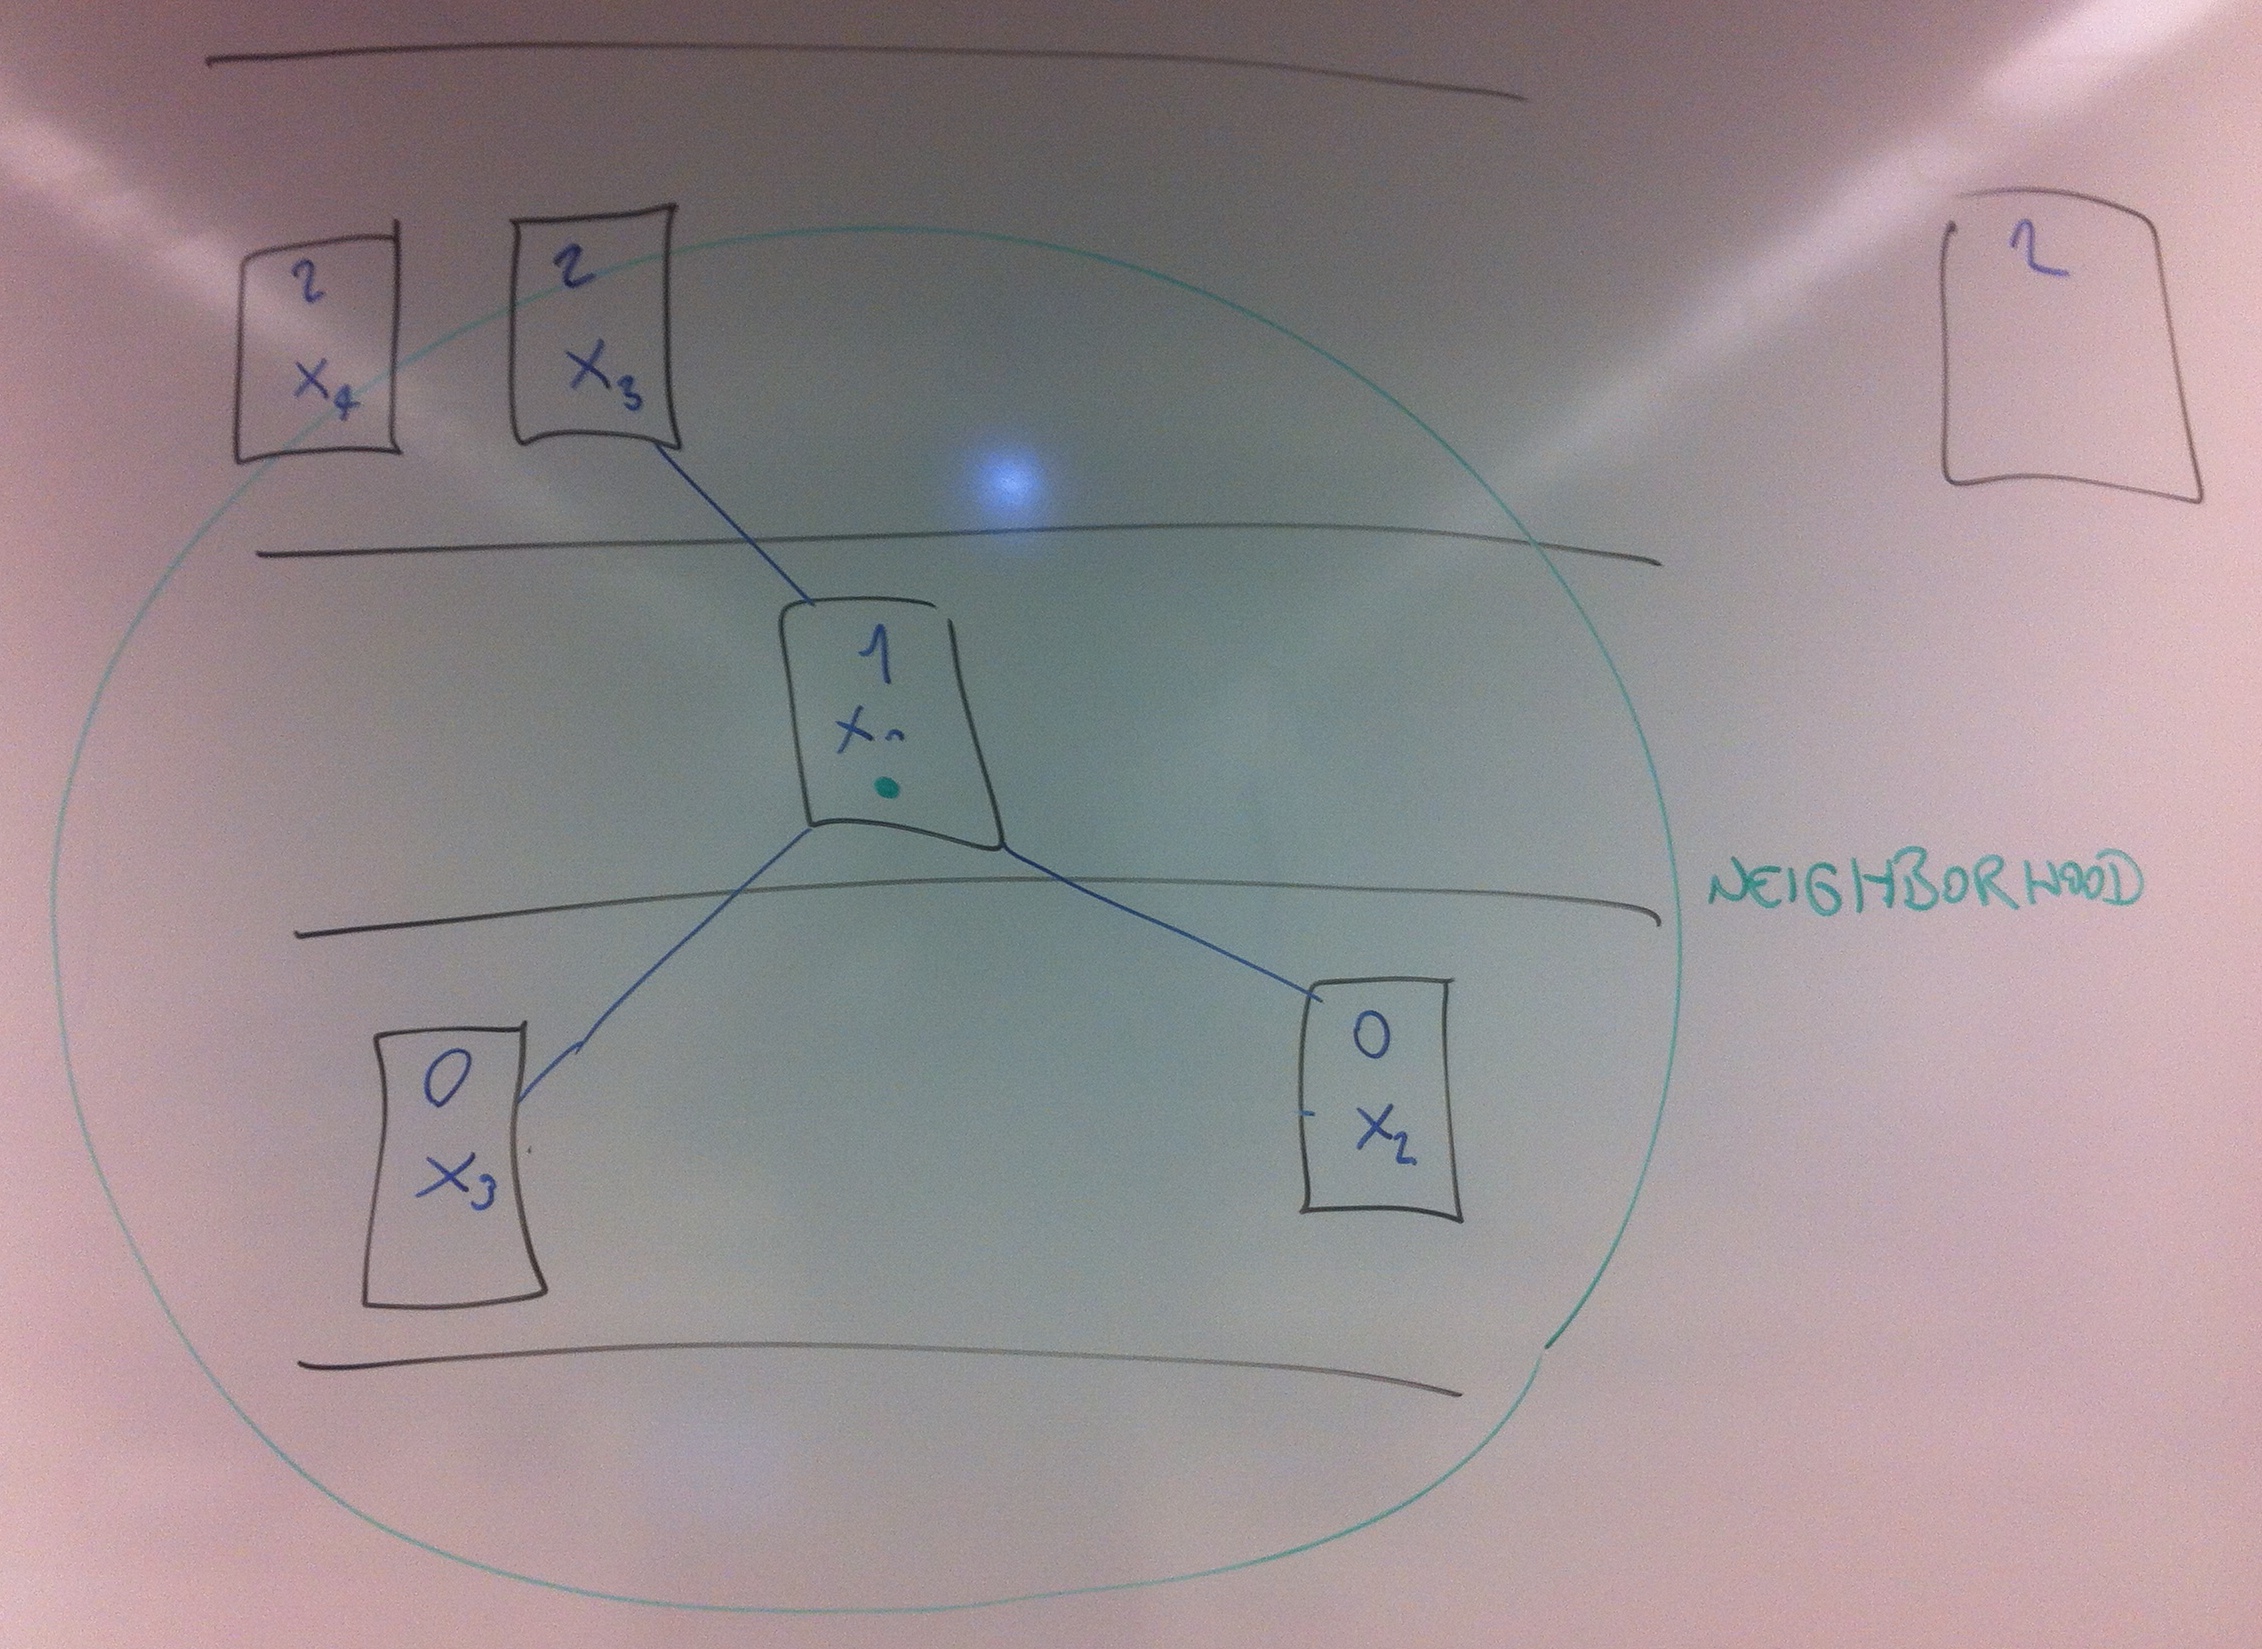 2
X4
2
X3
2
1
X
NEIGHBORHOOD
0
X3
0
X2